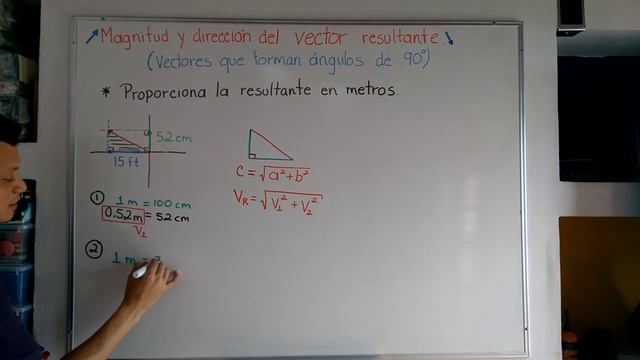 Magnitud y dirección del vector resultante.
(Vectores que forman ángulos de 90°)
* Proporciona la resultante en metros.
52 cm
15 ft
C = √a² + b²
V_R = √V₁² + V₂²
① 1 m = 100 cm
0.52 m = 52 cm
V₁
② 1 m = 3